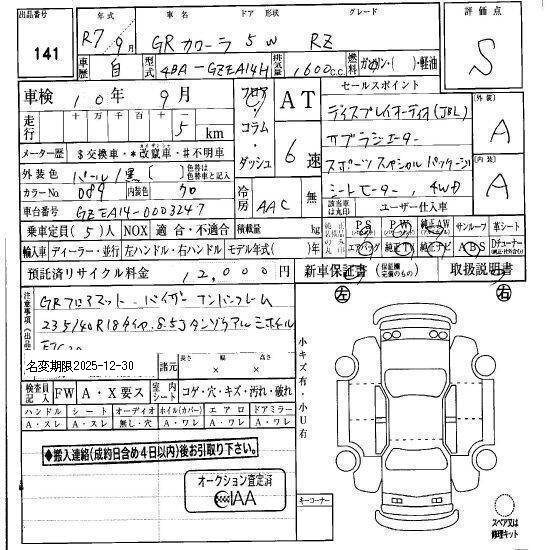 出品番号 141
年式 車名 ドア 形状 グレード 評価点
R7 9月 GRカローラ 5W RZ S
車歴 自 型式 4BA-GZEA14H 排気量 1600cc 燃料 ガソリン・( )・軽油
車検 10年 9月
フロア・コラム・ダッシュ AT 6速
走行 十万 万 千 百 十 5 km
メーター歴 $交換車・*改竄車・#不明車
セールスポイント
ディスプレイオーディオ(JBL)
サブラジエーター
スポーツスペシャルパッケージ
シートヒーター, 4WD
外装 A
内装 A
外装色 パール/黒 ( ) 色替車は色替車と記入
カラーNo 089 内装色 クロ
冷房 AAC 無
車台番号 GZEA14-0003247
該当車は丸印 ユーザー仕入車
乗車定員(5)人 NOX 適合・不適合 積載量 kg
PS PW 純正AW サンルーフ 革シート
エアバッグ 純正TV 純正ナビ ABS Dチューナー
輸入車 ディーラー・並行 左ハンドル・右ハンドル モデル年式( )年
預託済リサイクル料金 12,000円 新車保証書 (保証継続完備のもの) 取扱説明書
注意事項(出品
GRフロアマット・バイザー
235/40R18タイヤ.8.5J
名変期限2025-12-30
諸元 長さ × 幅 × 高さ
検査員記入 FW A・X要ス 室内シート コゲ・穴・キズ・汚れ・破れ
ハンドル シート オーディオ ホイル(カバー) エアロ ドアミラー
A・スレ A・スレ 無し・穴 A・ワレ A・ワレ A・ワレ
小キズ有・小U有
左 右
◆搬入連絡(成約日含め4日以内)後お引取り下さい。
オークション査定済
IAA
キーコーナー
スペア又は修理キット